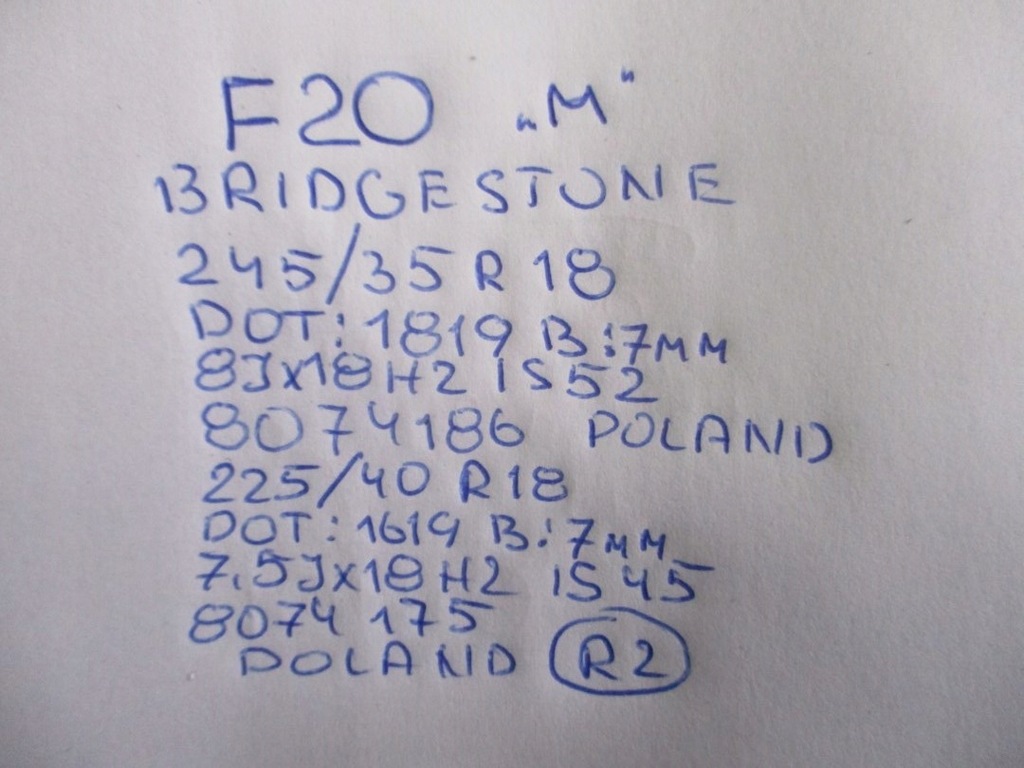 F20 „M“
BRIDGESTONE
245/35 R 18
DOT: 1819 B:7MM
8Jx18 H2 IS 52
8074186 POLAND
225/40 R18
DOT: 1619 B:7MM
7.5Jx18 H2 IS 45
8074 175
POLAND R2